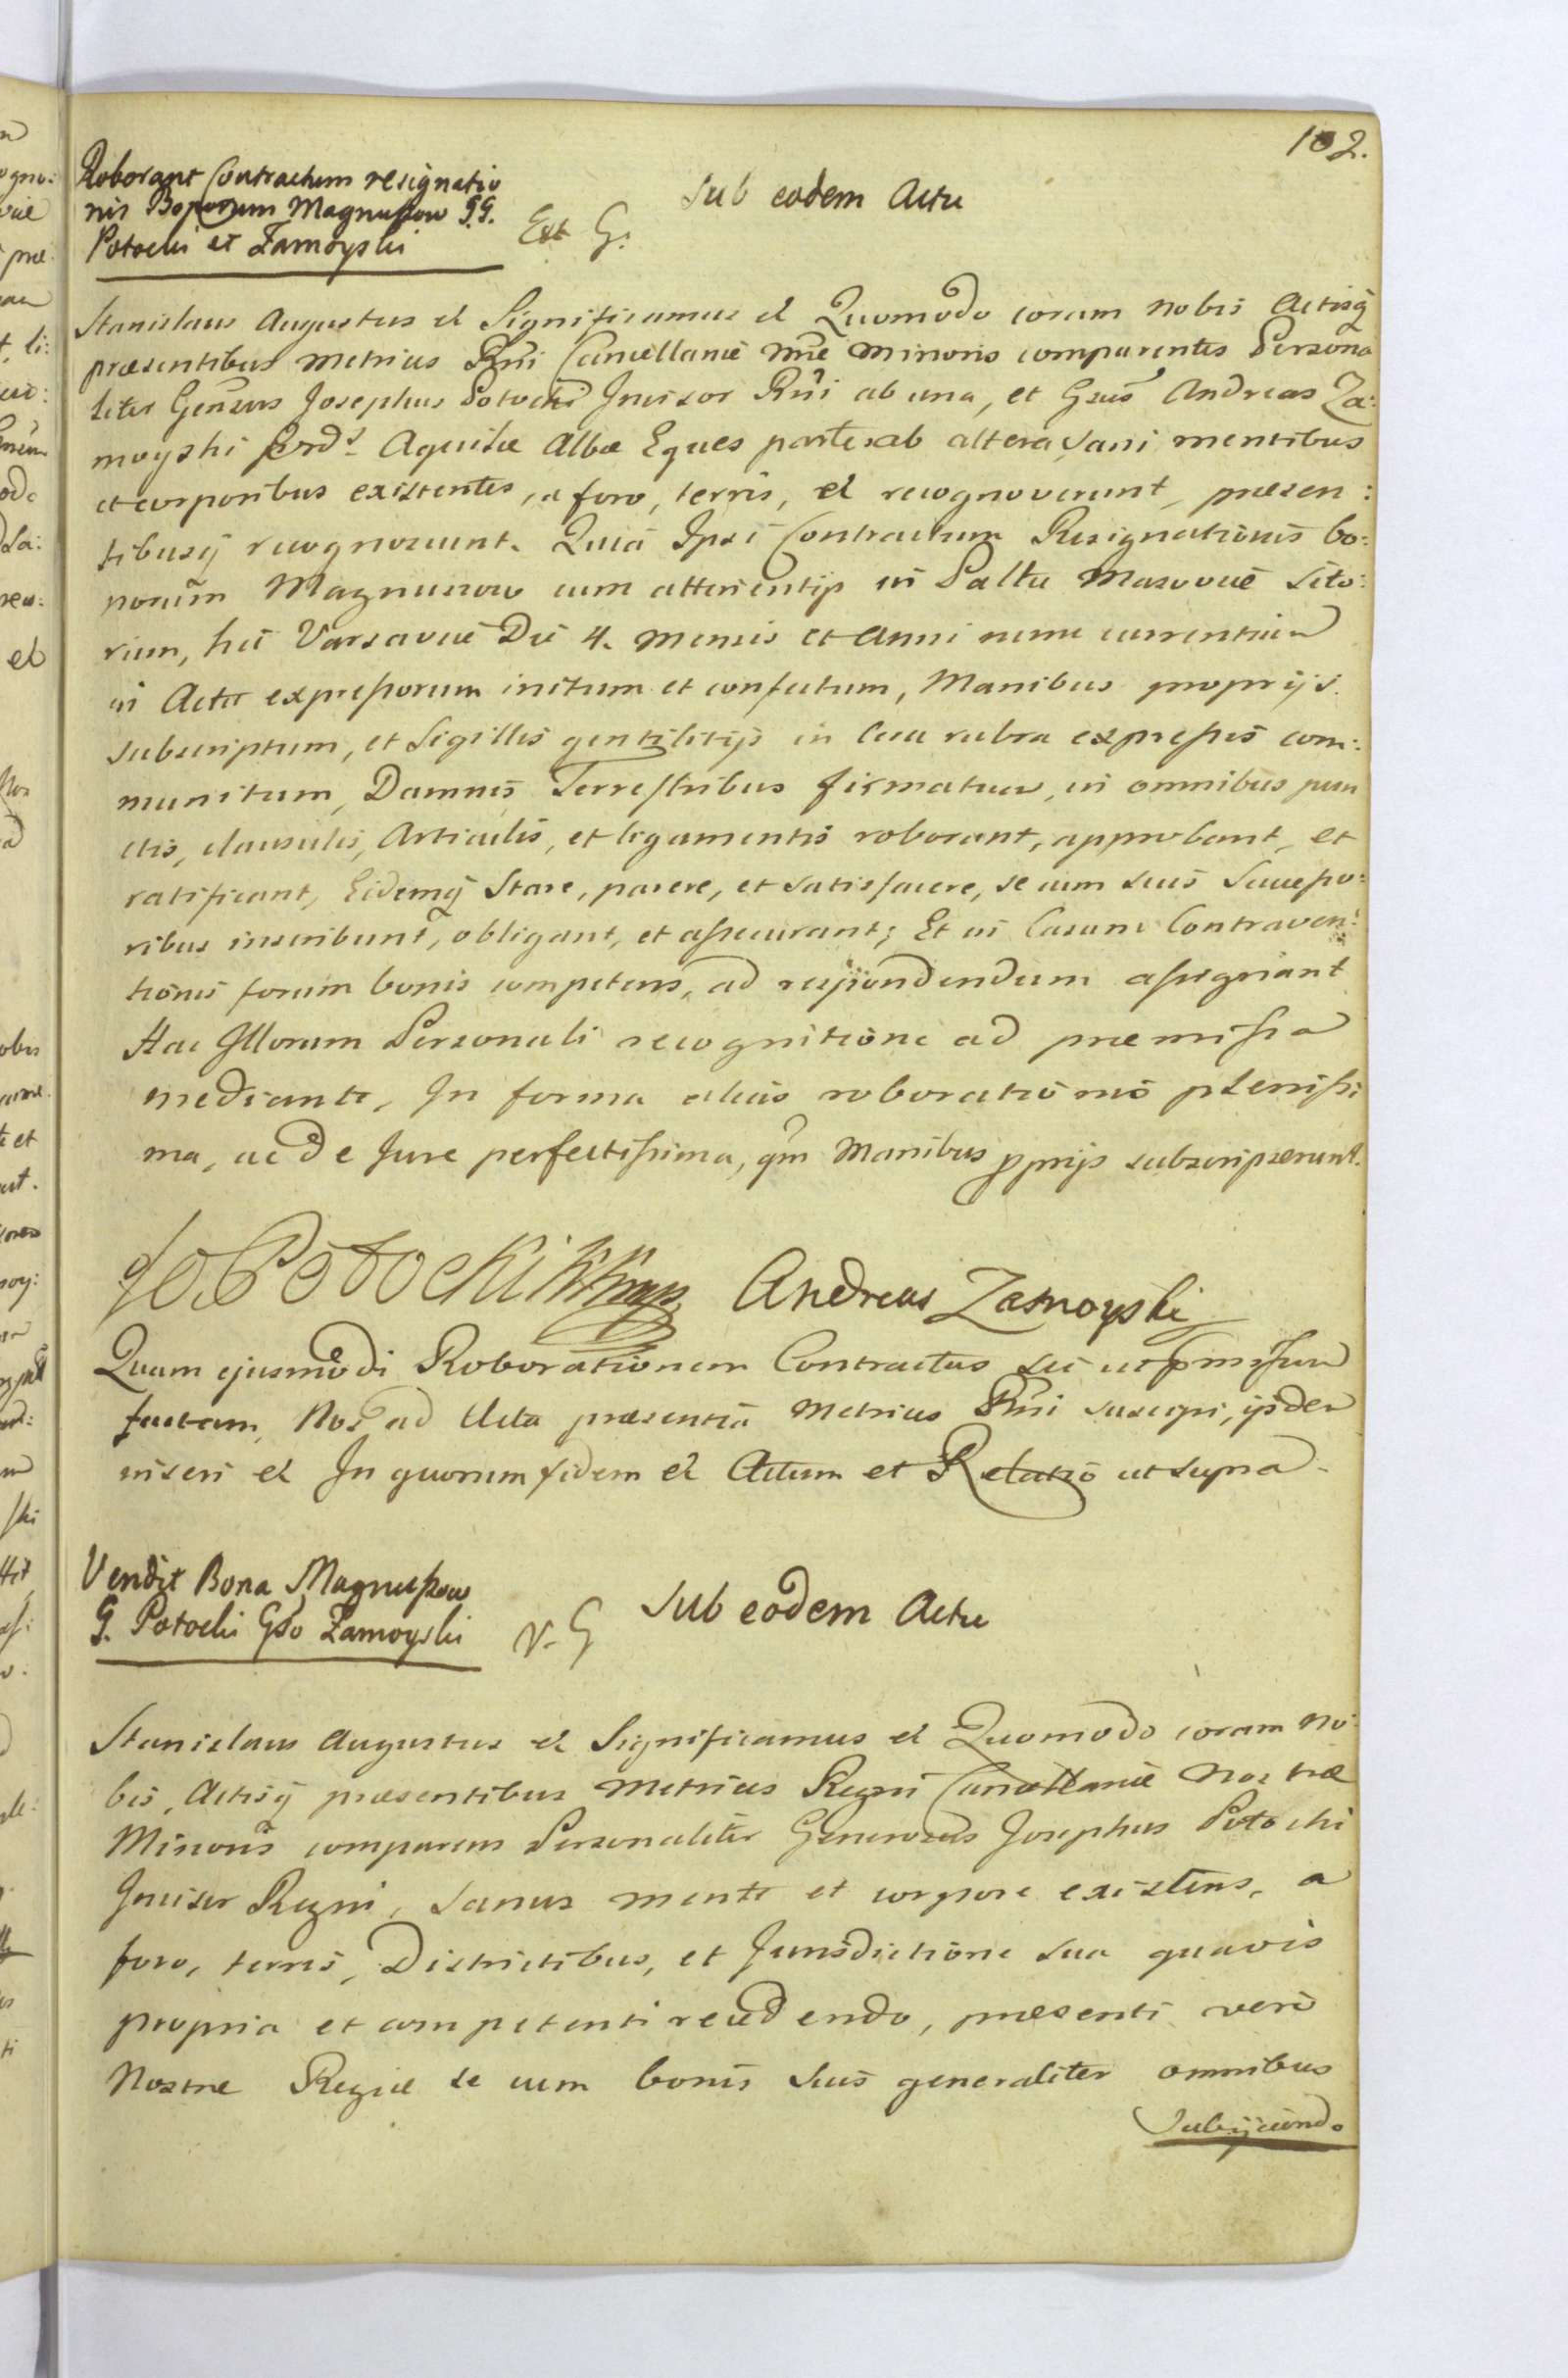 102.
Roborant Contractum resignatio
nis Bonorum Magnuszow G.G.
Potocki et Zamoyski
Ext G.
Sub eodem Actu
Stanislaus Augustus et Significamus et Quomodo coram nobis Actisq
præsentibus Metrices Rni Cancellariæ Nræ Minoris comparentes Persona
liter Gensus Josephus Potocki Incisor Rni ab una, et Gsus Andreas Za:
moyski Ord. Aquilæ Albæ Eques parte ab altera, sani mentibus
et corporibus existentes, a foro, terris, et recognoverunt, præsen:
tibusq recognoscunt. Quia Ipsi Contractum Resignationis bo:
norum Magnuszow cum attinentijs in Palttu Masoviæ Sito:
rum, hic Varsaviæ Die 4. mensis et Anni nunc currentium
in Actu expressorum initum et confectum, Manibus proprijs
subscriptum, et Sigillis gentilitijs in Cera rubra expressis com:
munitum, Damnis Terrestribus firmatum, in omnibus pun
ctis, clausulis, Articulis, et ligamentis roborant, approbant, et
ratificant, Eidemq Stare, parere, et satisfacere, se cum suis Successo:
ribus inscribunt, obligant, et assecurant; Et in Casum Contraven:
tionis forum bonis competens, ad respondendum assignant
Hac Illorum Personali recognitione ad præmissa
mediante, In forma alias roborationis plenissi
ma, ac de Jure perfectissima, qm Manibus pprijs subscripserunt.
Jo. Potocki Andreas Zamoyski
Quam ejusmodi Roborationem Contractus sic ut pmissum
factam, Nos ad Acta præsentia Metrices Rni suscepi, ijsdem
inseri et In quorum fidem et Actum et Relatio ut supra.
Vendit Bona Magnuszow
G. Potocki Gso Zamoyski
V. G
Sub eodem Actu
Stanislaus Augustus et Significamus et Quomodo coram No:
bis, Actisq præsentibus Metrices Regni Cancellariæ Nostræ
Minoris comparens Personaliter Generosus Josephus Potocki
Incisor Regni, sanus mente et corpore existens, a
foro, terris, Districtibus, et Jurisdictione sua quavis
propria et competenti recedendo, præsenti vero
Nostræ Regiæ se cum bonis suis generaliter omnibus
Subijciendo